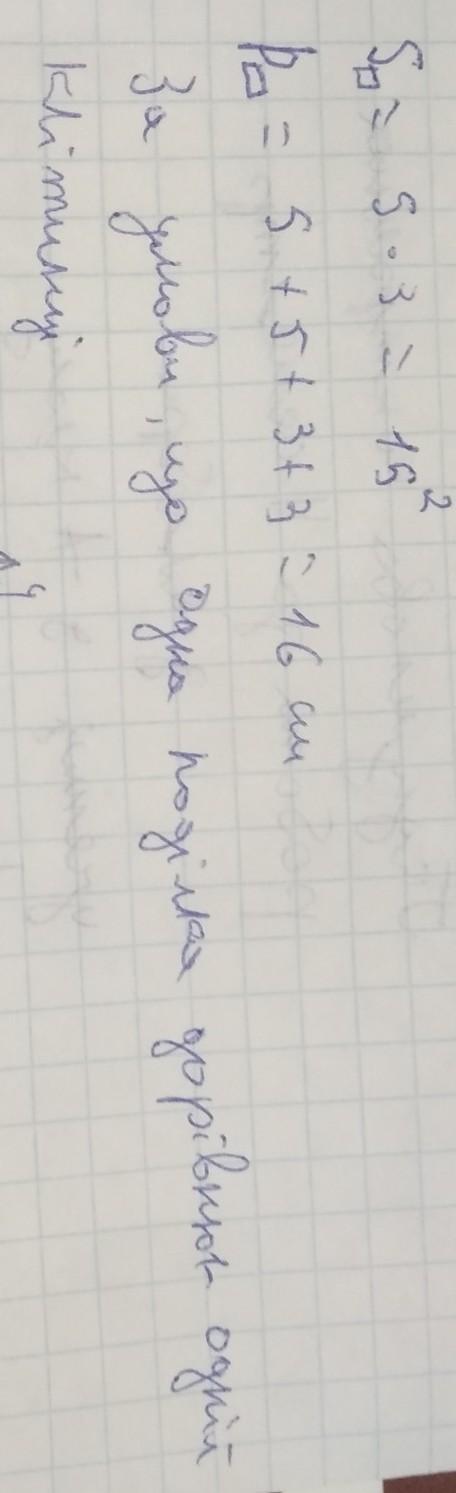 S▭ = 5 · 3 = 15²
P▭ = 5 + 5 + 3 + 3 = 16 см
За умови, що одна поділка дорівнює одній
клітинці